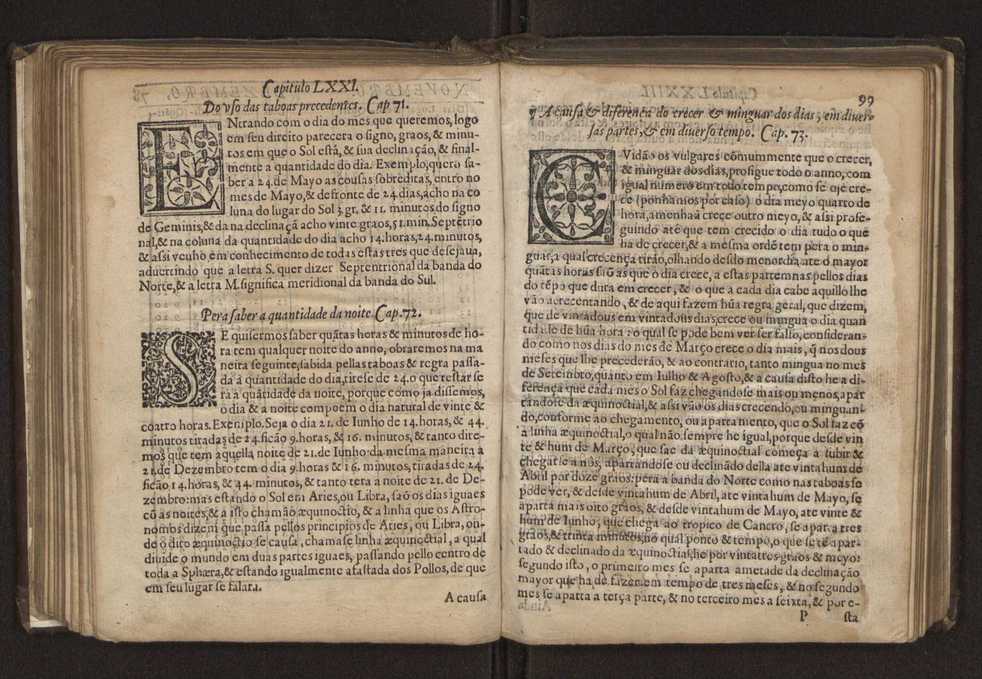 Capitulo LXXI.
Do vso das taboas precedentes. Cap 71.
ENtrando com o dia do mes que queremos, logo
em seu direito parecera o signo, graos, & minu-
tos em que o Sol està, & sua declinação, & final-
mente a quantidade do dia. Exemplo, quero sa-
ber a 24. de Mayo as cousas sobreditas, entro no
mes de Mayo, & defronte de 24. dias, acho na co
luna do lugar do Sol 3. gr. & 11. minutos do signo
de Geminis, & da na declinaçã acho vinte graos, 51. min. Septẽtrio
nal, & na coluna da quantidade do dia acho 14. horas, 24. minutos,
& assi venho em conhecimento de todas estas tres que desejaua,
aduertindo que a letra S. quer dizer Septentrional da banda do
Norte, & a letra M. significa meridional da banda do Sul.
Pera saber a quantidade da noite Cap. 72.
SE quisermos saber quãtas horas & minutos de ho-
ra tem qualquer noite do anno, obraremos na ma
neira seguinte, sabida pellas taboas & regra passa-
da a quantidade do dia, tirese de 24. o que restar se
ra a quãtidade da noite, porque como ja dissemos,
o dia & a noite compoem o dia natural de vinte &
coatro horas. Exemplo. Seja o dia 21. de Iunho de 14. horas, & 44.
minutos tiradas de 24. ficão 9. horas, & 16. minutos, & tanto dire-
mos que tem aquella noite de 21. de Iunho da mesma maneira a
21. de Dezembro tem o dia 9. horas & 16. minutos, tiradas de 24.
ficão 14. horas, & 44. minutos, & tanto terà a noite de 21. de De-
zembro: mas estando o Sol em Aries, ou Libra, saõ os dias iguaes
cõ as noites, & a isto chamão æquinoctio, & a linha que os Astro-
nomos dizem que passa pellos principios de Aries, ou Libra, on-
de o dito æquinoctio se causa, chamase linha æquinoctial, a qual
diuide o mundo em duas partes iguaes, passando pello centro de
toda a Sphæra, & estando igualmente afastada dos Pollos, de que
em seu lugar se falara.
A causa
99
¶ A causa & diferença do crecer & minguar dos dias, em diuer-
sas partes, & em diuerso tempo. Cap. 73.
CVidão os vulgares cõmummente que o crecer,
& minguar dos dias, prosigue todo o anno, com
igual numero em todo tempo, como se oje cre-
ce (ponhamos por caso) o dia meyo quarto de
hora, amenhaã crece outro meyo, & assi prose-
guindo atè que tem crecido o dia tudo o que
ha de crecer, & a mesma ordẽ tem pera o min-
guar, a qual crecença tirão, olhando desdo menor dia atè o mayor
quãtas horas sàõ as que o dia crece, a estas partem nas pellos dias
do tẽpo que dura em crecer, & o que a cada dia cabe aquillo lhe
vão acrecentando, & de aqui fazem hũa regra geral, que dizem,
que de vintadous em vintadous dias, crece ou mingua o dia quan
tidade de hũa hora: o qual se pode bem ver ser falso, consideran-
do como nos dias do mes de Março crece o dia mais, q̃ nos dous
meses que lhe precederão, & ao contrario, tanto mingua no mes
de Setembro, quanto em Iulho & Agosto, & a causa disto he a di-
ferença que cada mes o Sol faz chegandose mais ou menos, a par
tandose da æquinoctial, & assi vão os dias crecendo, ou minguan
do, conforme ao chegamento, ou apartamento, que o Sol faz cõ
a linha æquinoctial, o qual não sempre he igual, porque desde vin
te & hum de Março, que sae da æquinoctial começa a subir &
chegarse a nòs, apartandose ou declinãdo della ate vinta hum de
Abril por doze graios: pera a banda do Norte como nas taboas se
pode ver, & desde vinta hum de Abril, ate vinta hum de Mayo, se
aparta mais oito graos, & desde vinta hum de Mayo, ate vinte &
hum de Iunho, que chega ao tropico de Cancro, se aparta tres
graos, & trinta minutos, no qual ponto & tempo, o que se tẽ apar-
tado & declinado da æquinoctial, he por vinta tres graos & meyo:
segundo isto, o primeiro mes se aparta ametade da declinação
mayor que ha de fazer em tempo de tres meses, & no segundo
mes se aparta a terça parte, & no terceiro mes a seixta, & por e-
P
sta